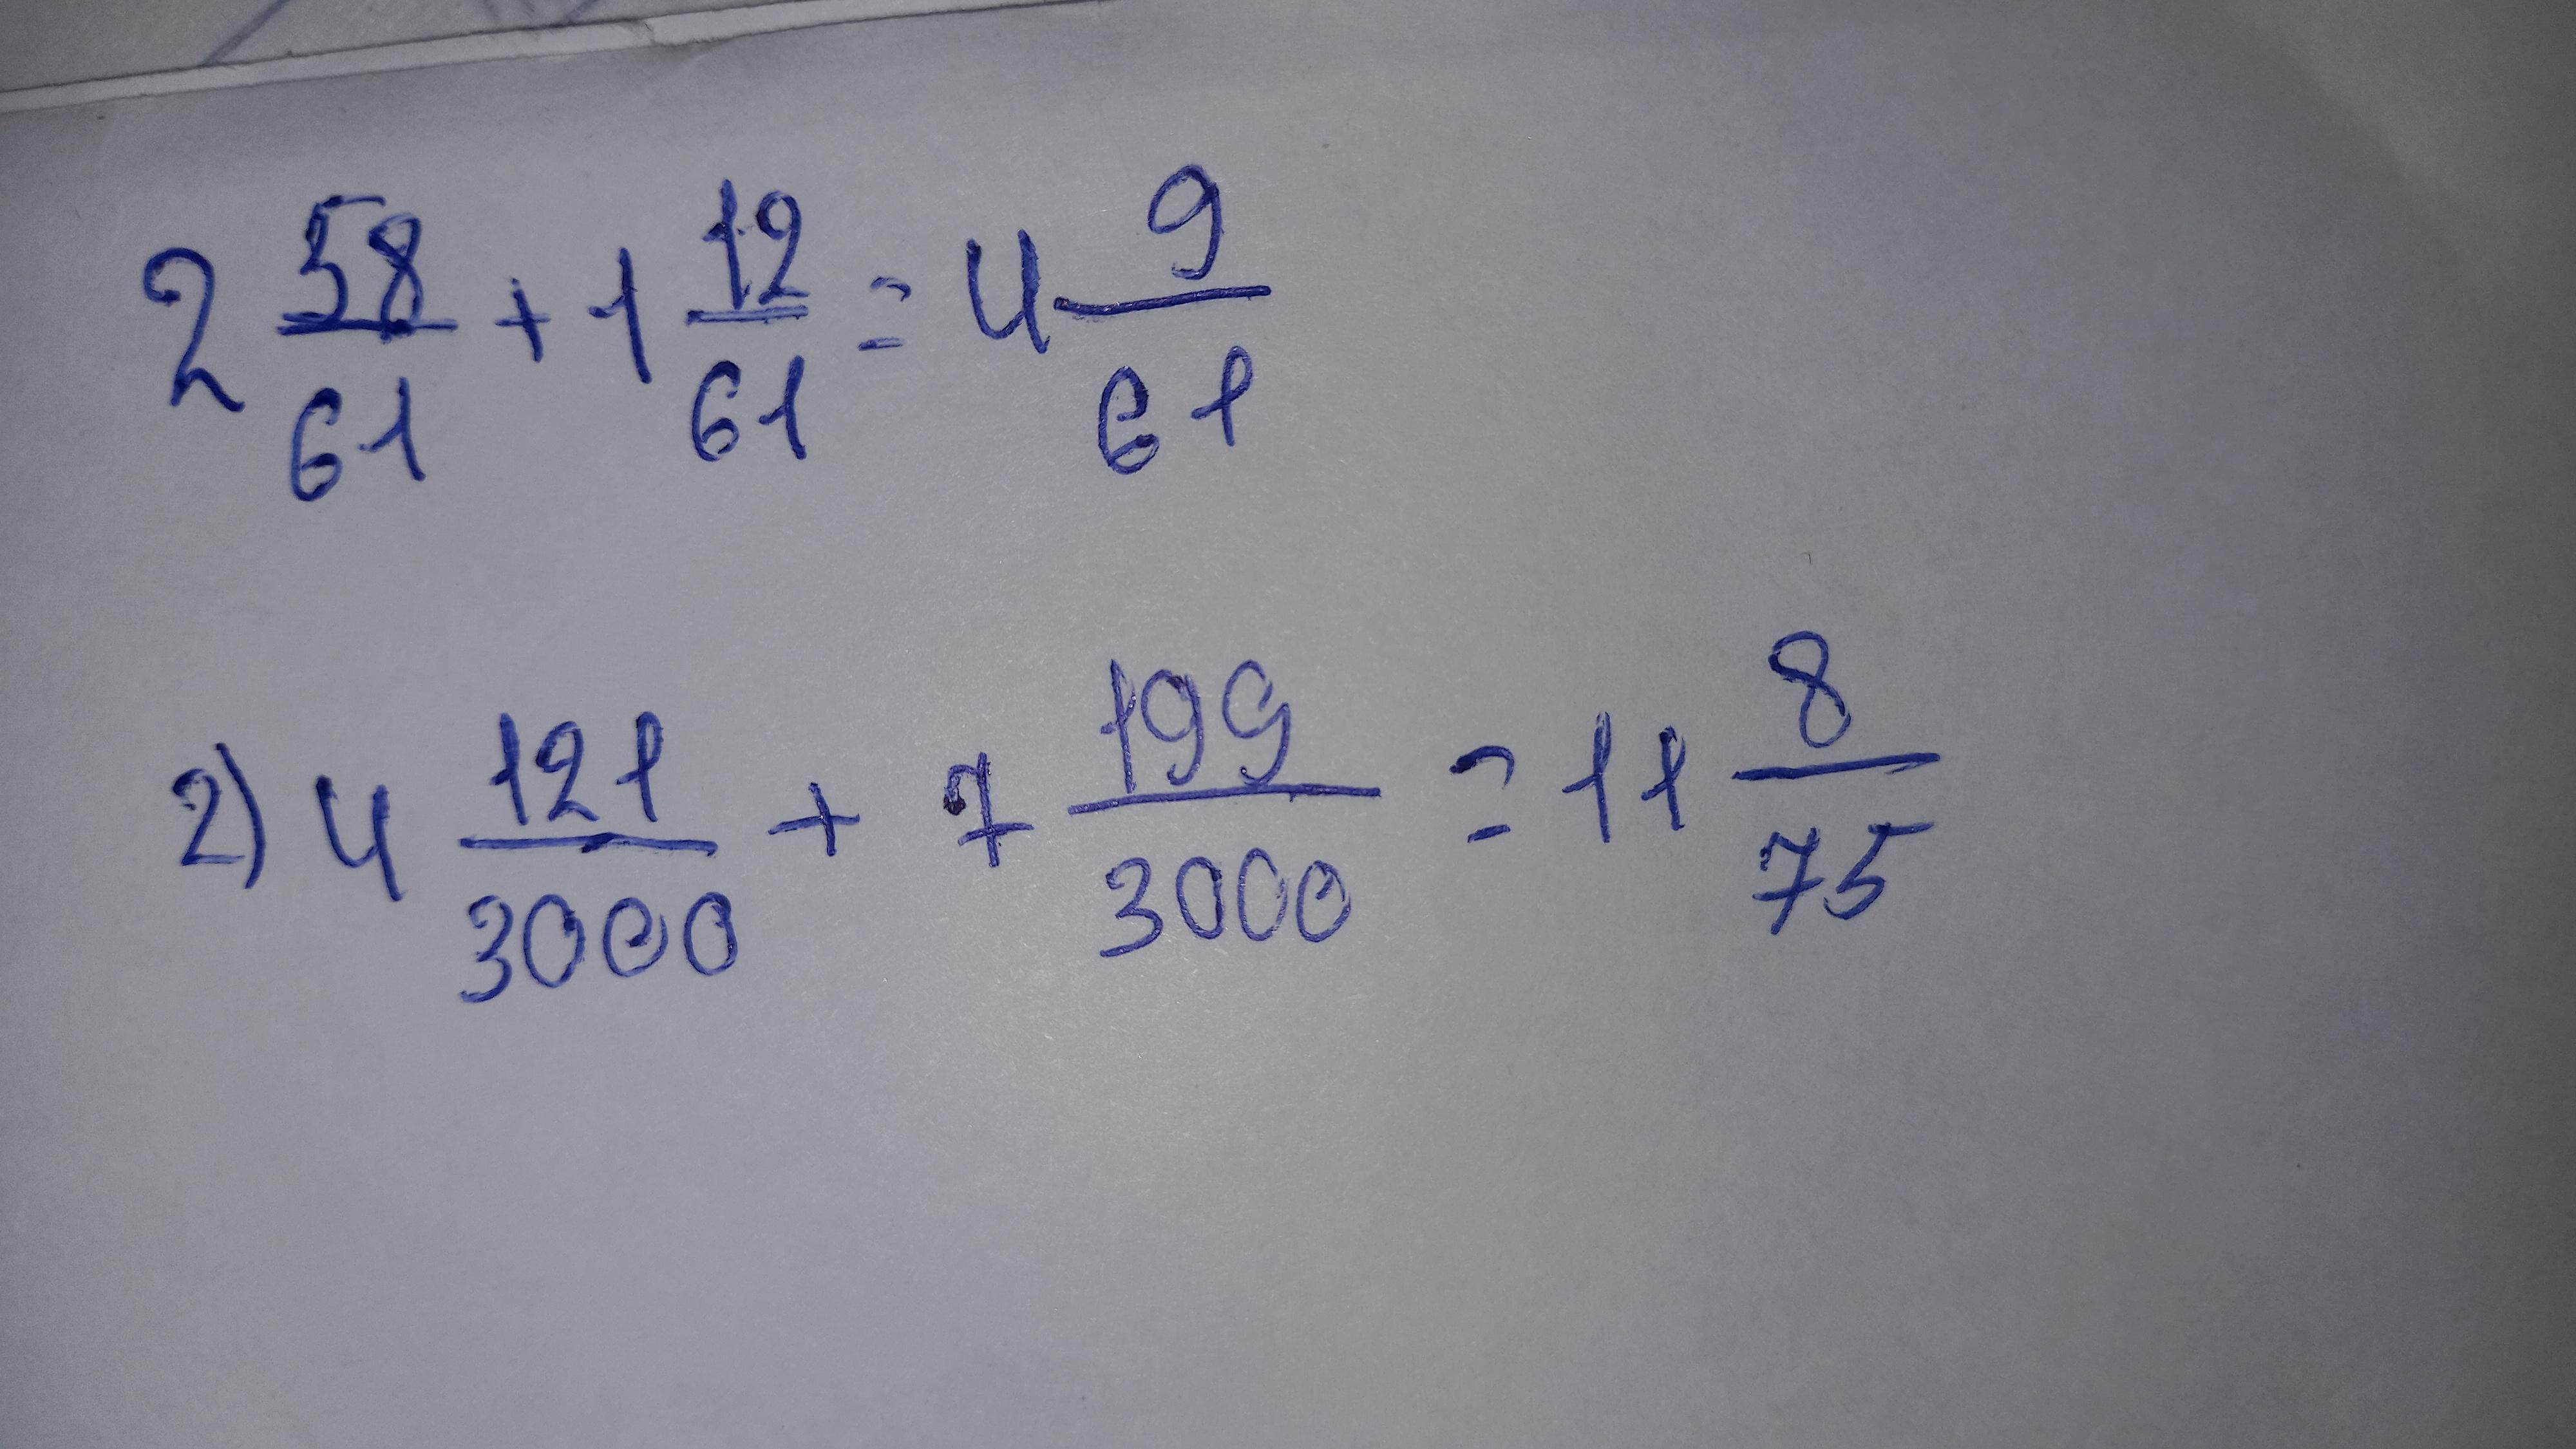 2 58/61 + 1 12/61 = 4 9/61
2) 4 121/3000 + 7 199/3000 = 11 8/75